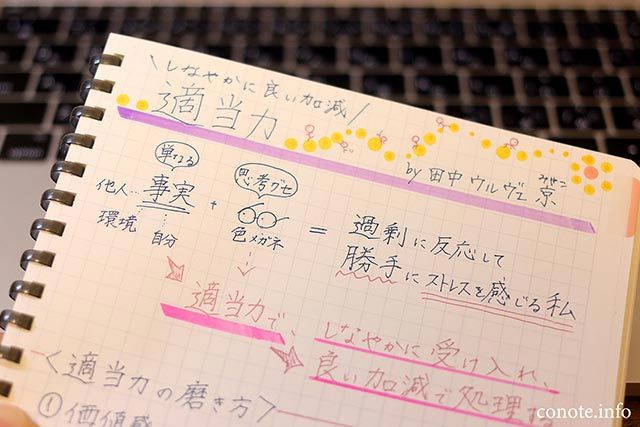 \しなやかに良い加減/
適当力
by 田中ウルヴェ 京
みやこ
単なる
思考グセ
他人… 事実 + = 過剰に反応して
環境 自分 色メガネ 勝手にストレスを感じる私
適当力で、しなやかに受け入れ、
良い加減で処理する
<適当力の磨き方>
①価値感
conote.info